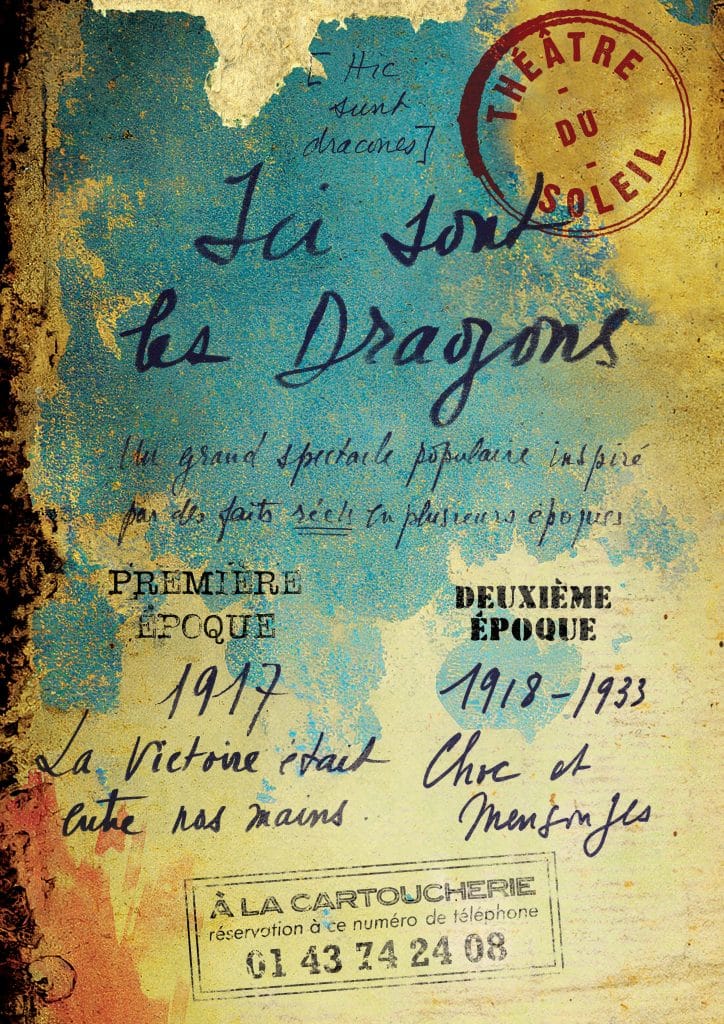 [Hic
sunt
dracones]
THÉÂTRE
- DU -
SOLEIL
Ici sont
les Dragons
Un grand spectacle populaire inspiré
par des faits réels en plusieurs époques
PREMIÈRE
ÉPOQUE
1917
La Victoire était
entre nos mains.
DEUXIÈME
ÉPOQUE
1918-1933
Choc et
Mensonges
À LA CARTOUCHERIE
réservation à ce numéro de téléphone
01 43 74 24 08